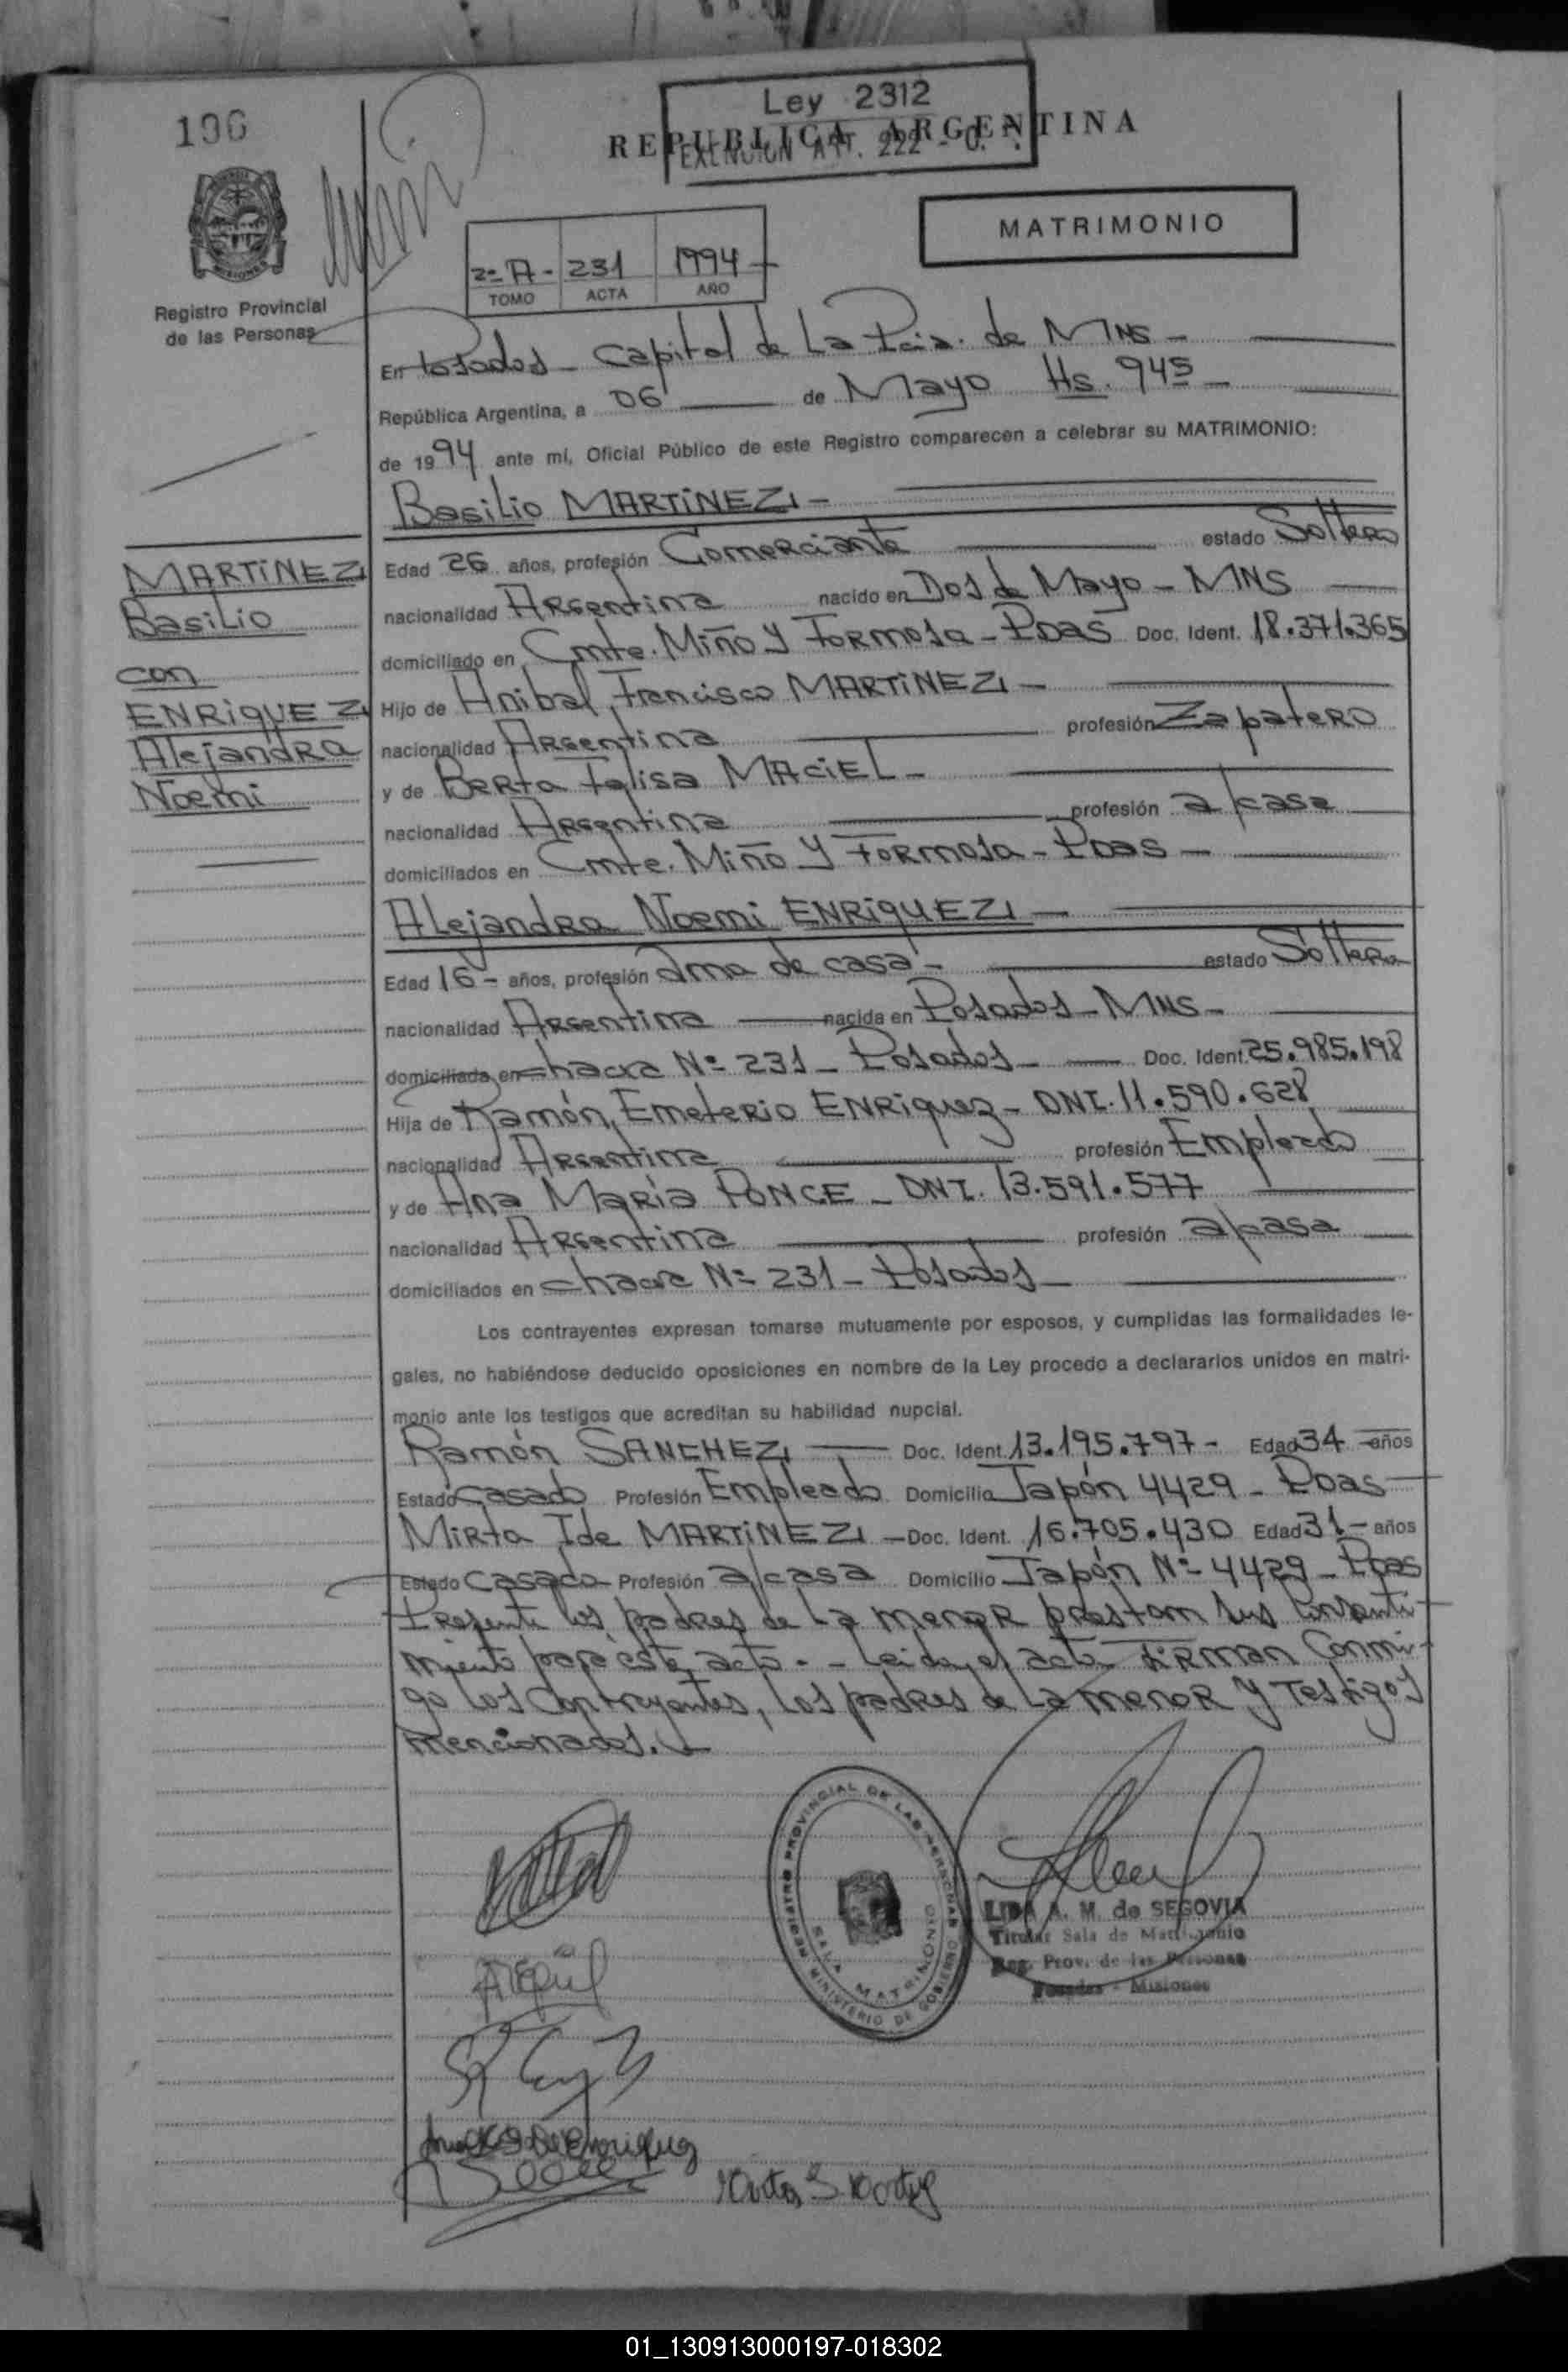 196
Ley 2312
REPUBLICA ARGENTINA
EXENCION ART. 222 -
MATRIMONIO
2º A - 231 1994
TOMO ACTA AÑO
Registro Provincial
de las Personas
En Posadas - Capital de La Pcia. de MNS -
República Argentina, a 06 de Mayo Hs. 945 -
de 1994 ante mí, Oficial Público de este Registro comparecen a celebrar su MATRIMONIO:
Basilio MARTINEZ -
MARTINEZ
Basilio
con
ENRIQUEZ
Alejandra
Noemi
Edad 26 años, profesión Comerciante estado Soltero
nacionalidad Argentina nacido en Dos de Mayo - MNS
domiciliado en Cmte. Miño y Formosa - Pdas Doc. Ident. 18.371.365
Hijo de Anibal Francisco MARTINEZ -
nacionalidad Argentina profesión Zapatero
y de Berta MACIEL -
nacionalidad Argentina profesión a/casa
domiciliados en Cmte. Miño y Formosa - Pdas -
Alejandra Noemi ENRIQUEZ -
Edad 16 - años, profesión Ama de casa - estado Soltera
nacionalidad Argentina nacida en Posadas - MNS -
domiciliada en chacra Nº 231 - Posadas - Doc. Ident. 25.985.198
Hija de Ramón, Emeterio ENRiquez - DNI. 11.590.628
nacionalidad Argentina profesión Empleado
y de Ana María PONCE - DNI. 13.591.577
nacionalidad Argentina profesión a/casa
domiciliados en chacra Nº 231 - Posadas -
Los contrayentes expresan tomarse mutuamente por esposos, y cumplidas las formalidades le-
gales, no habiéndose deducido oposiciones en nombre de la Ley procedo a declararlos unidos en matri-
monio ante los testigos que acreditan su habilidad nupcial.
Ramón SANCHEZ Doc. Ident. 13.195.797 - Edad 34 años
Estado Casado Profesión Empleado Domicilio Japón 4429 - Pdas
Mirta Ide MARTINEZ - Doc. Ident. 16.705.430 Edad 31 - años
Estado Casada Profesión a/casa Domicilio Japón Nº 4429 - Pdas
Presente los padres de La menor prestam sus Consenti-
miento para este acto. - Leida el acta FiRman Conmi-
go Los Contrayentes, Los padres de La menor y Testigos
mencionados.
REGISTRO PROVINCIAL DE LAS PERSONAS
SALA MATRIMONIO
MINISTERIO DE GOBIERNO
LIDA A. M. de SEGOVIA
Titular Sala de Matrimonio
Reg. Prov. de las Personas
Posadas - Misiones
01_130913000197-018302